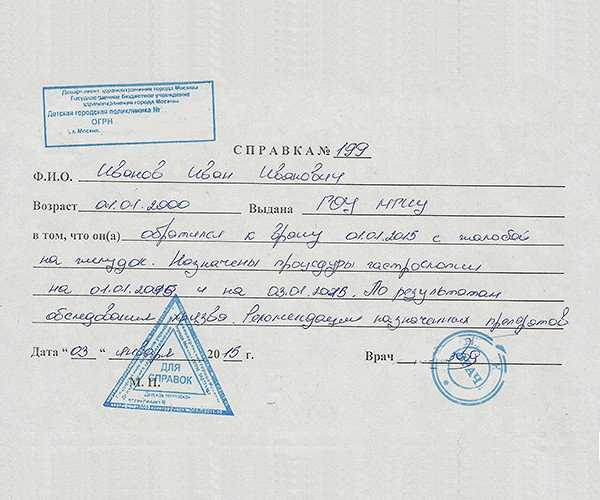 Департамент здравоохранения города Москвы
Государственное бюджетное учреждение
здравоохранения города Москвы
Детская городская поликлиника №
ОГРН
г. Москва,
СПРАВКА № 199
Ф.И.О. Иванов Иван Иванович
Возраст 01.01.2000 Выдана ГОУ
в том, что он(а) обратился к врачу 01.01.2015 с жалобой
на желудок. Назначены процедуры гастроскопии
на 01.01.2015 и на 03.01.2015. По результатам
обследования язва. Рекомендации назначенных препаратов
Дата “ 03 “ января 2015 г. Врач
ВРАЧ
М. П.
ДЛЯ
СПРАВОК